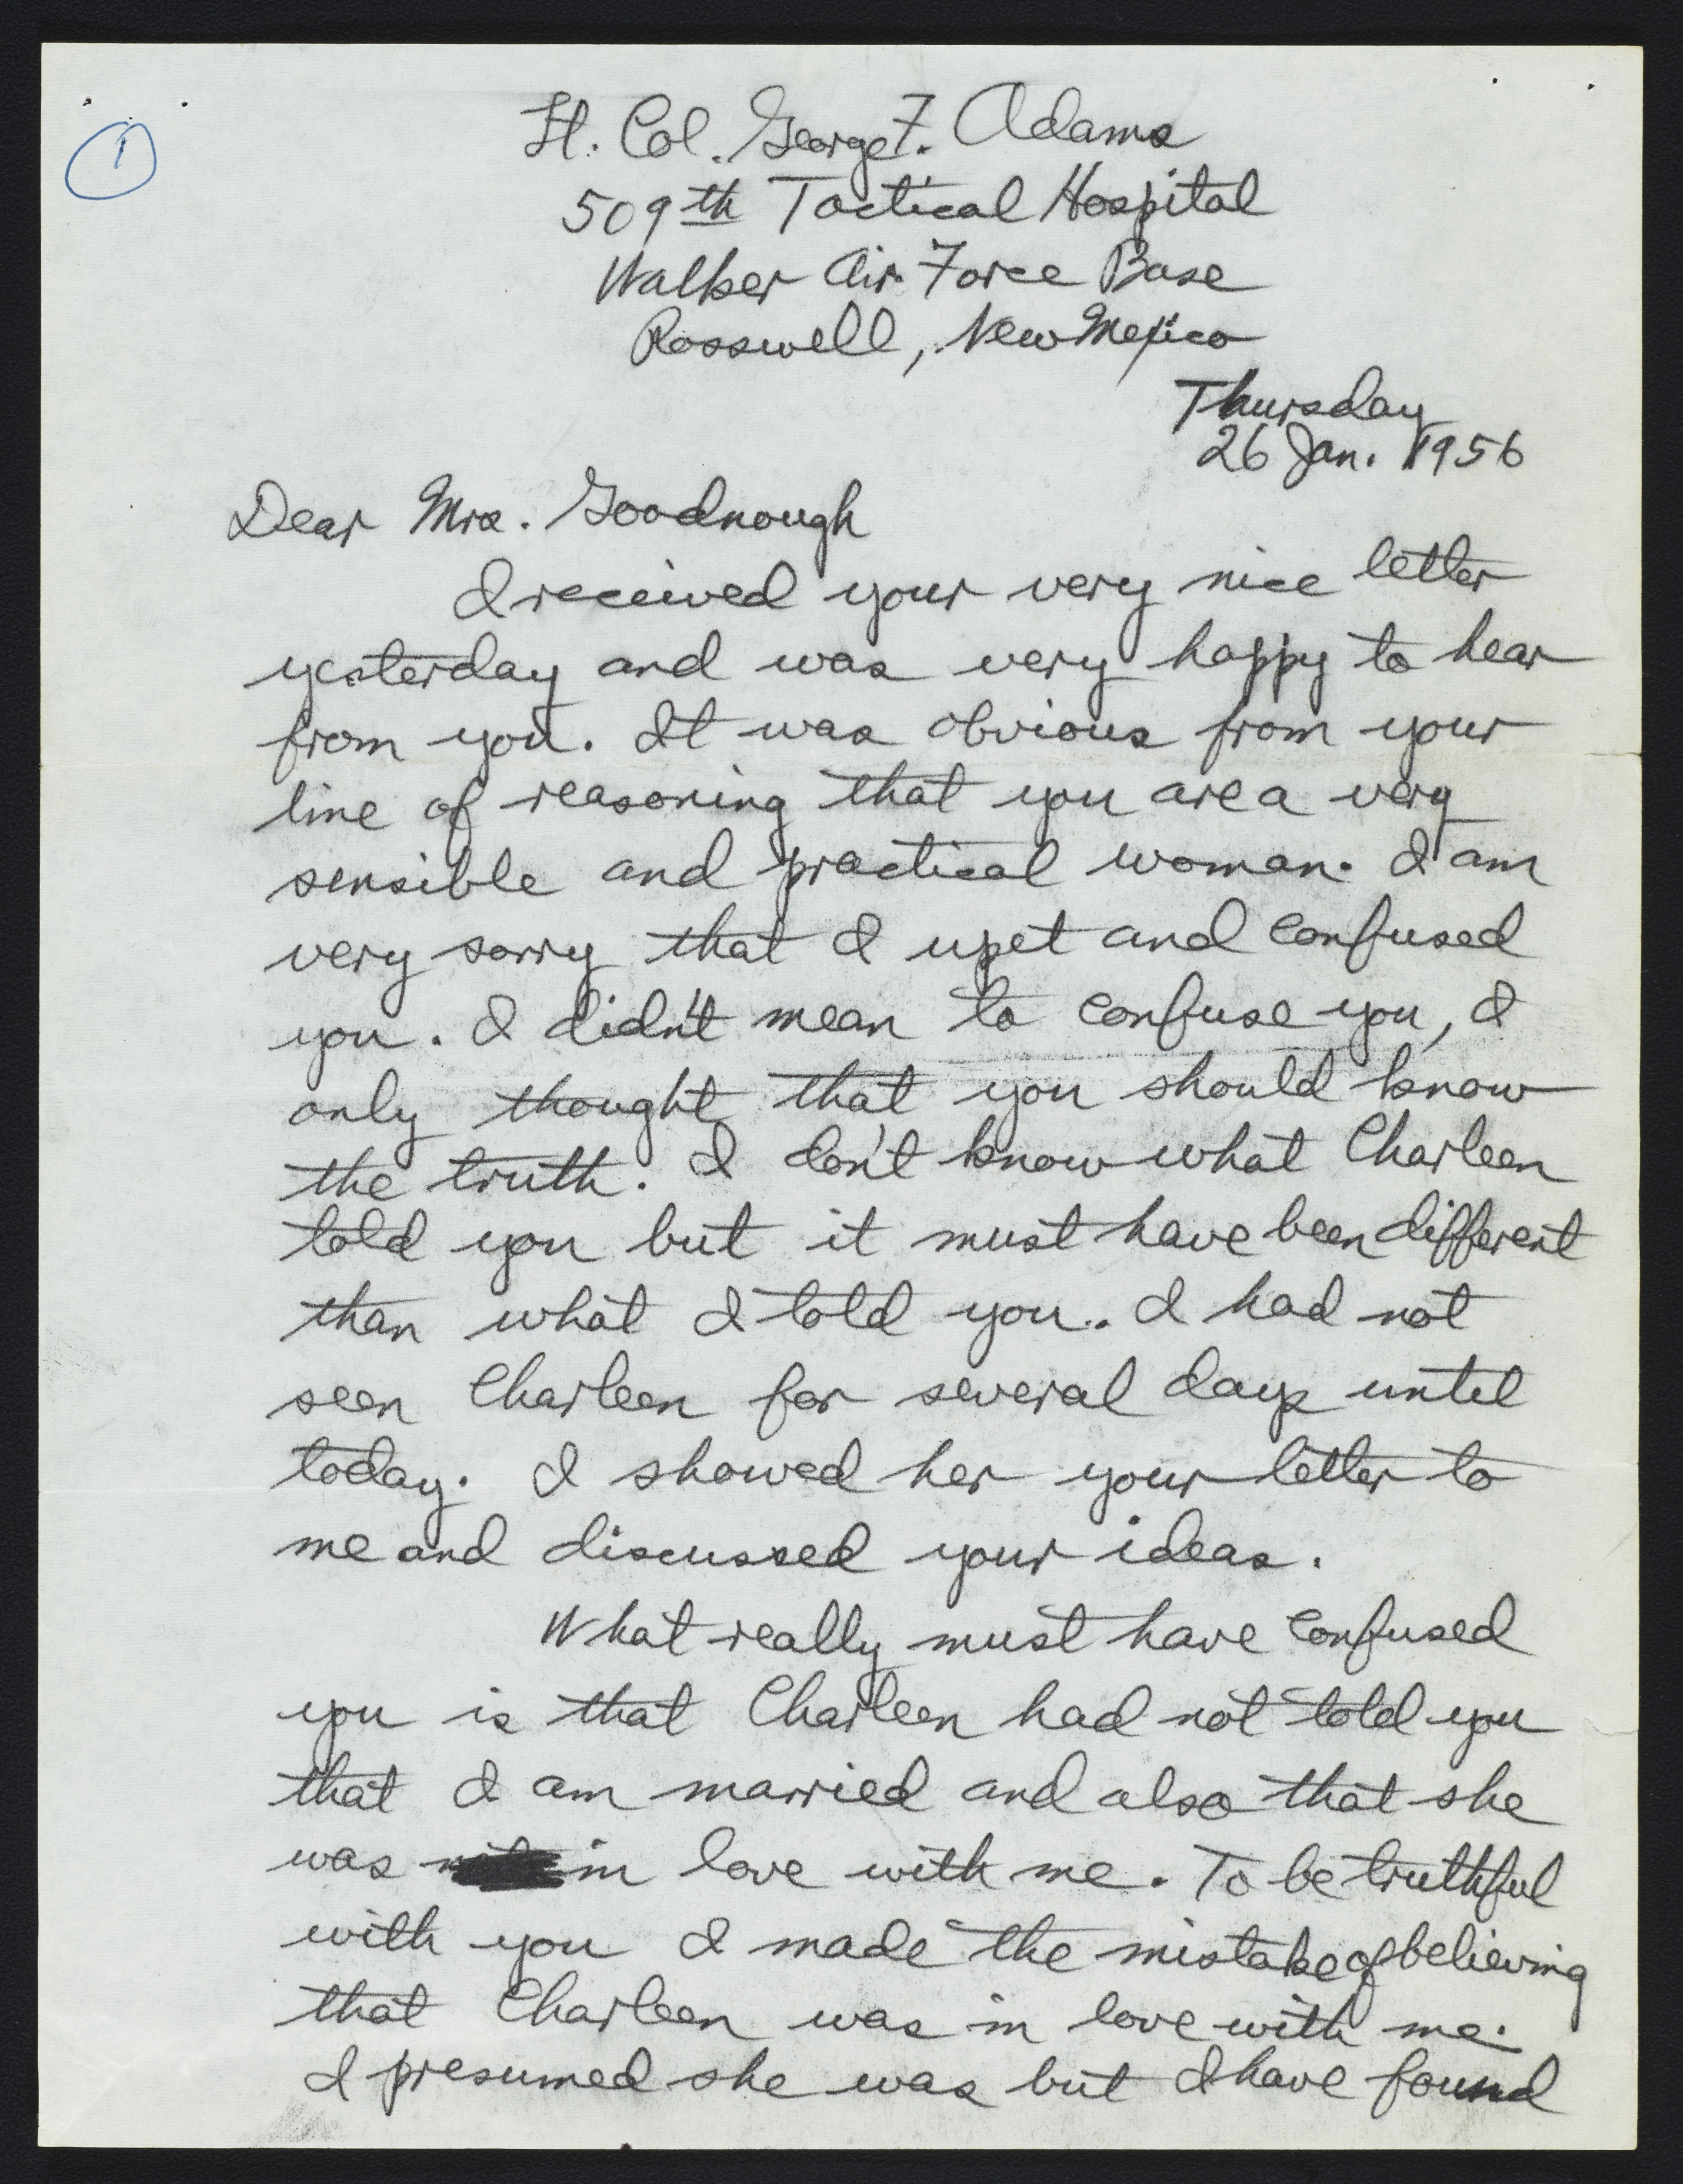 1
Lt. Col. George F. Adams
509th Tactical Hospital
Walker Air Force Base
Rosswell, New Mexico
Thursday
26 Jan. 1956
Dear Mrs. Goodnough
I received your very nice letter
yesterday and was very happy to hear
from you. It was obvious from your
line of reasoning that you are a very
sensible and practical woman. I am
very sorry that I upet and confused
you. I didn't mean to confuse you, I
only thought that you should know
the truth. I don't know what Charleen
told you but it must have been different
than what I told you. I had not
seen Charleen for several days until
today. I showed her your letter to
me and discussed your ideas.
What really must have confused
you is that Charleen had not told you
that I am married and also that she
was in love with me. To be truthful
with you I made the mistake of believing
that Charleen was in love with me.
I presumed she was but I have found